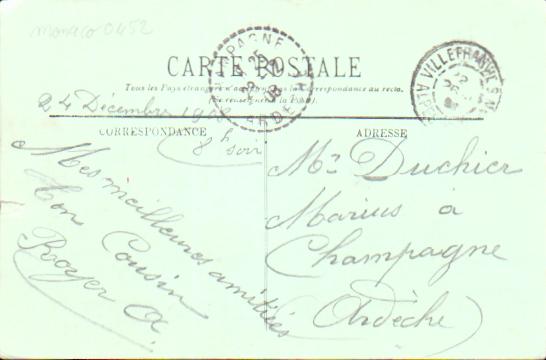 monaco 0452
CHAMPAGNE
ARDÈCHE
CARTE POSTALE
Tous les Pays étrangers n'acceptent pas la correspondance au recto.
(Se renseigner à la Poste).
VILLEFRANCHE S. M.
24 Décembre
8h soir
CORRESPONDANCE
ADRESSE
Mes meilleures amitiés
Ton Cousin
Royer A
Mr Duchier
Marius à
Champagne
(Ardèche)